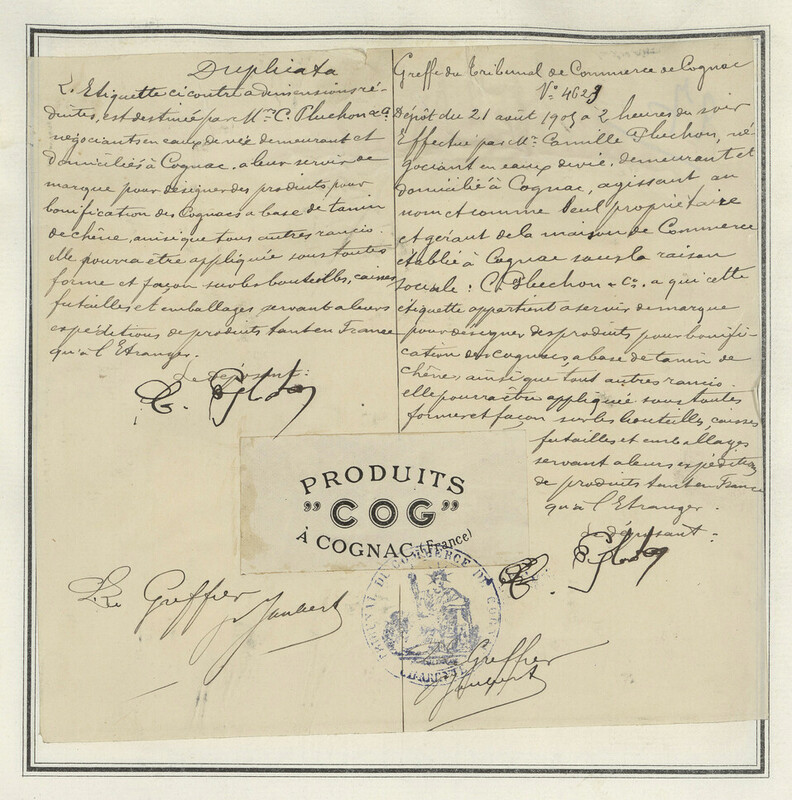 Duplicata
L'Etiquette ci contre a dimensions ré-
duites, est destinée par Mrs C. Pluchon & Co
négociants en eaux de vie demeurant et
domiciliés à Cognac, a leur servir de
marque pour désigner des produits pour
bonification des Cognacs a base de tanin
de chêne, ainsi que tous autres rancio.
elle pourra être appliquée sous toutes
forme et façon sur les bouteilles, caisses,
futailles et emballages, servant a leurs
expéditions de produits tant en France
qu'à l'Etranger.
Le déposant:
Greffe du Tribunal de Commerce de Cognac
No 4623
Dépôt du 21 août 1905 a 2 heures du soir
Effectué par Mr Camille Pluchon, né-
gociant en eaux de vie, demeurant et
domicilié à Cognac, agissant au
nom et comme seul propriétaire
et gérant de la maison de Commerce
établie à Cognac sous la raison
sociale: C. Pluchon & Co. a qui cette
étiquette appartient a servir de marque
pour désigner des produits pour bonifi-
cation des cognacs, a base de tanin de
chêne, ainsi que tout autres rancio.
elle pourra être appliquée sous toutes
formes et façon sur les bouteilles, caisses
futailles et emballages
servant a leurs expéditions
de produits tant en France
qu'à l'Etranger.
Le déposant:
PRODUITS
"COG"
À COGNAC (France)
Le Greffier
Jaubert
TRIBUNAL DE COMMERCE DE COGNAC
CHARENTE
Le Greffier
Jaubert